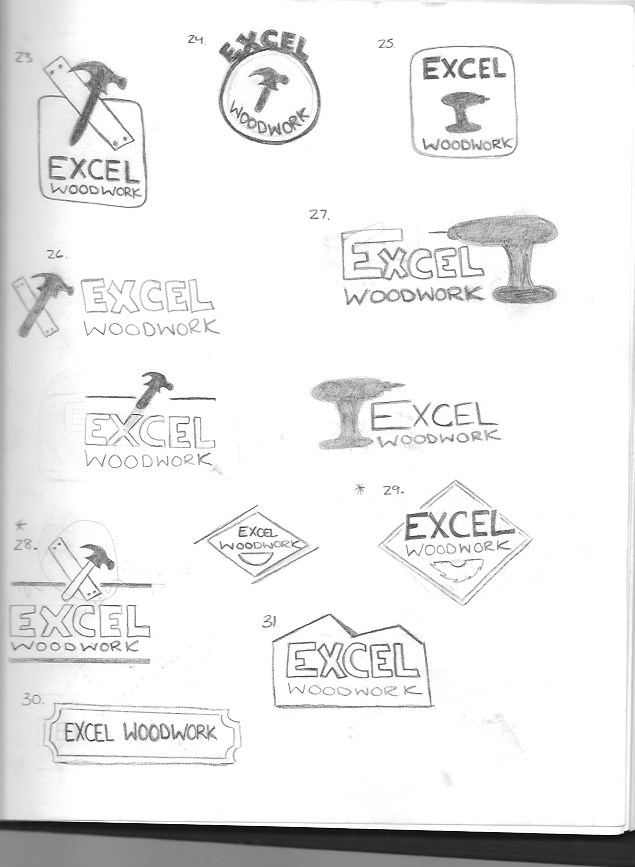 23
EXCEL
WOODWORK
24.
EXCEL
WOODWORK
25.
EXCEL
WOODWORK
26.
EXCEL
WOODWORK
27.
EXCEL
WOODWORK
EXCEL
WOODWORK
EXCEL
WOODWORK
*
28.
EXCEL
WOODWORK
EXCEL
WOODWORK
* 29.
EXCEL
WOODWORK
30.
EXCEL WOODWORK
31
EXCEL
WOODWORK